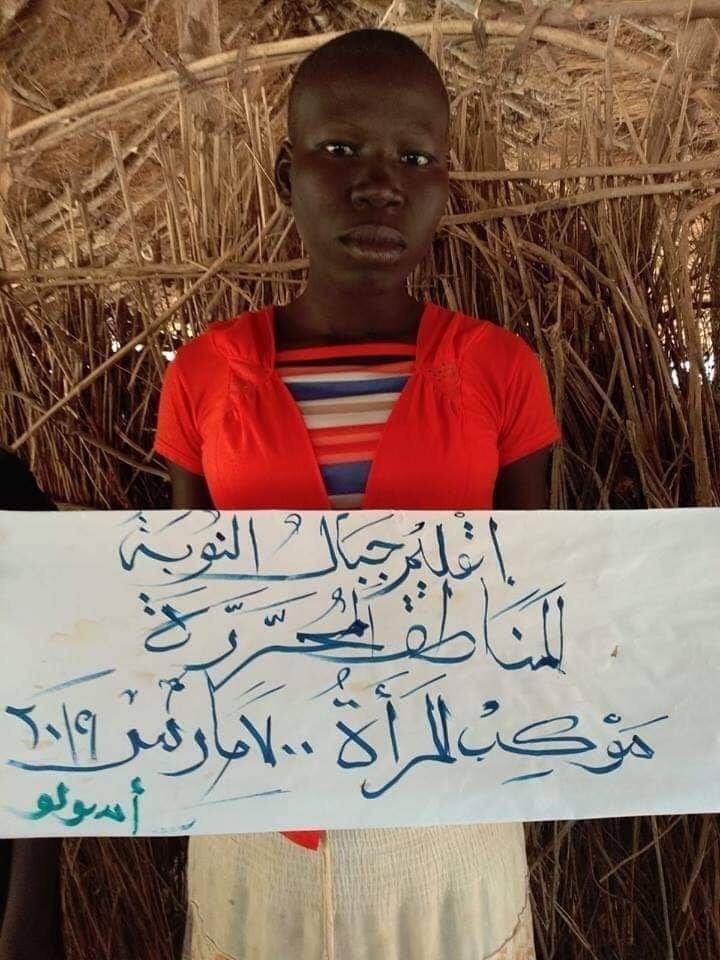 إقليم جبال النوبة
المناطق المحررة
موكب المرأة ٧٠٠ مارس ٢٠١٩
أسولو